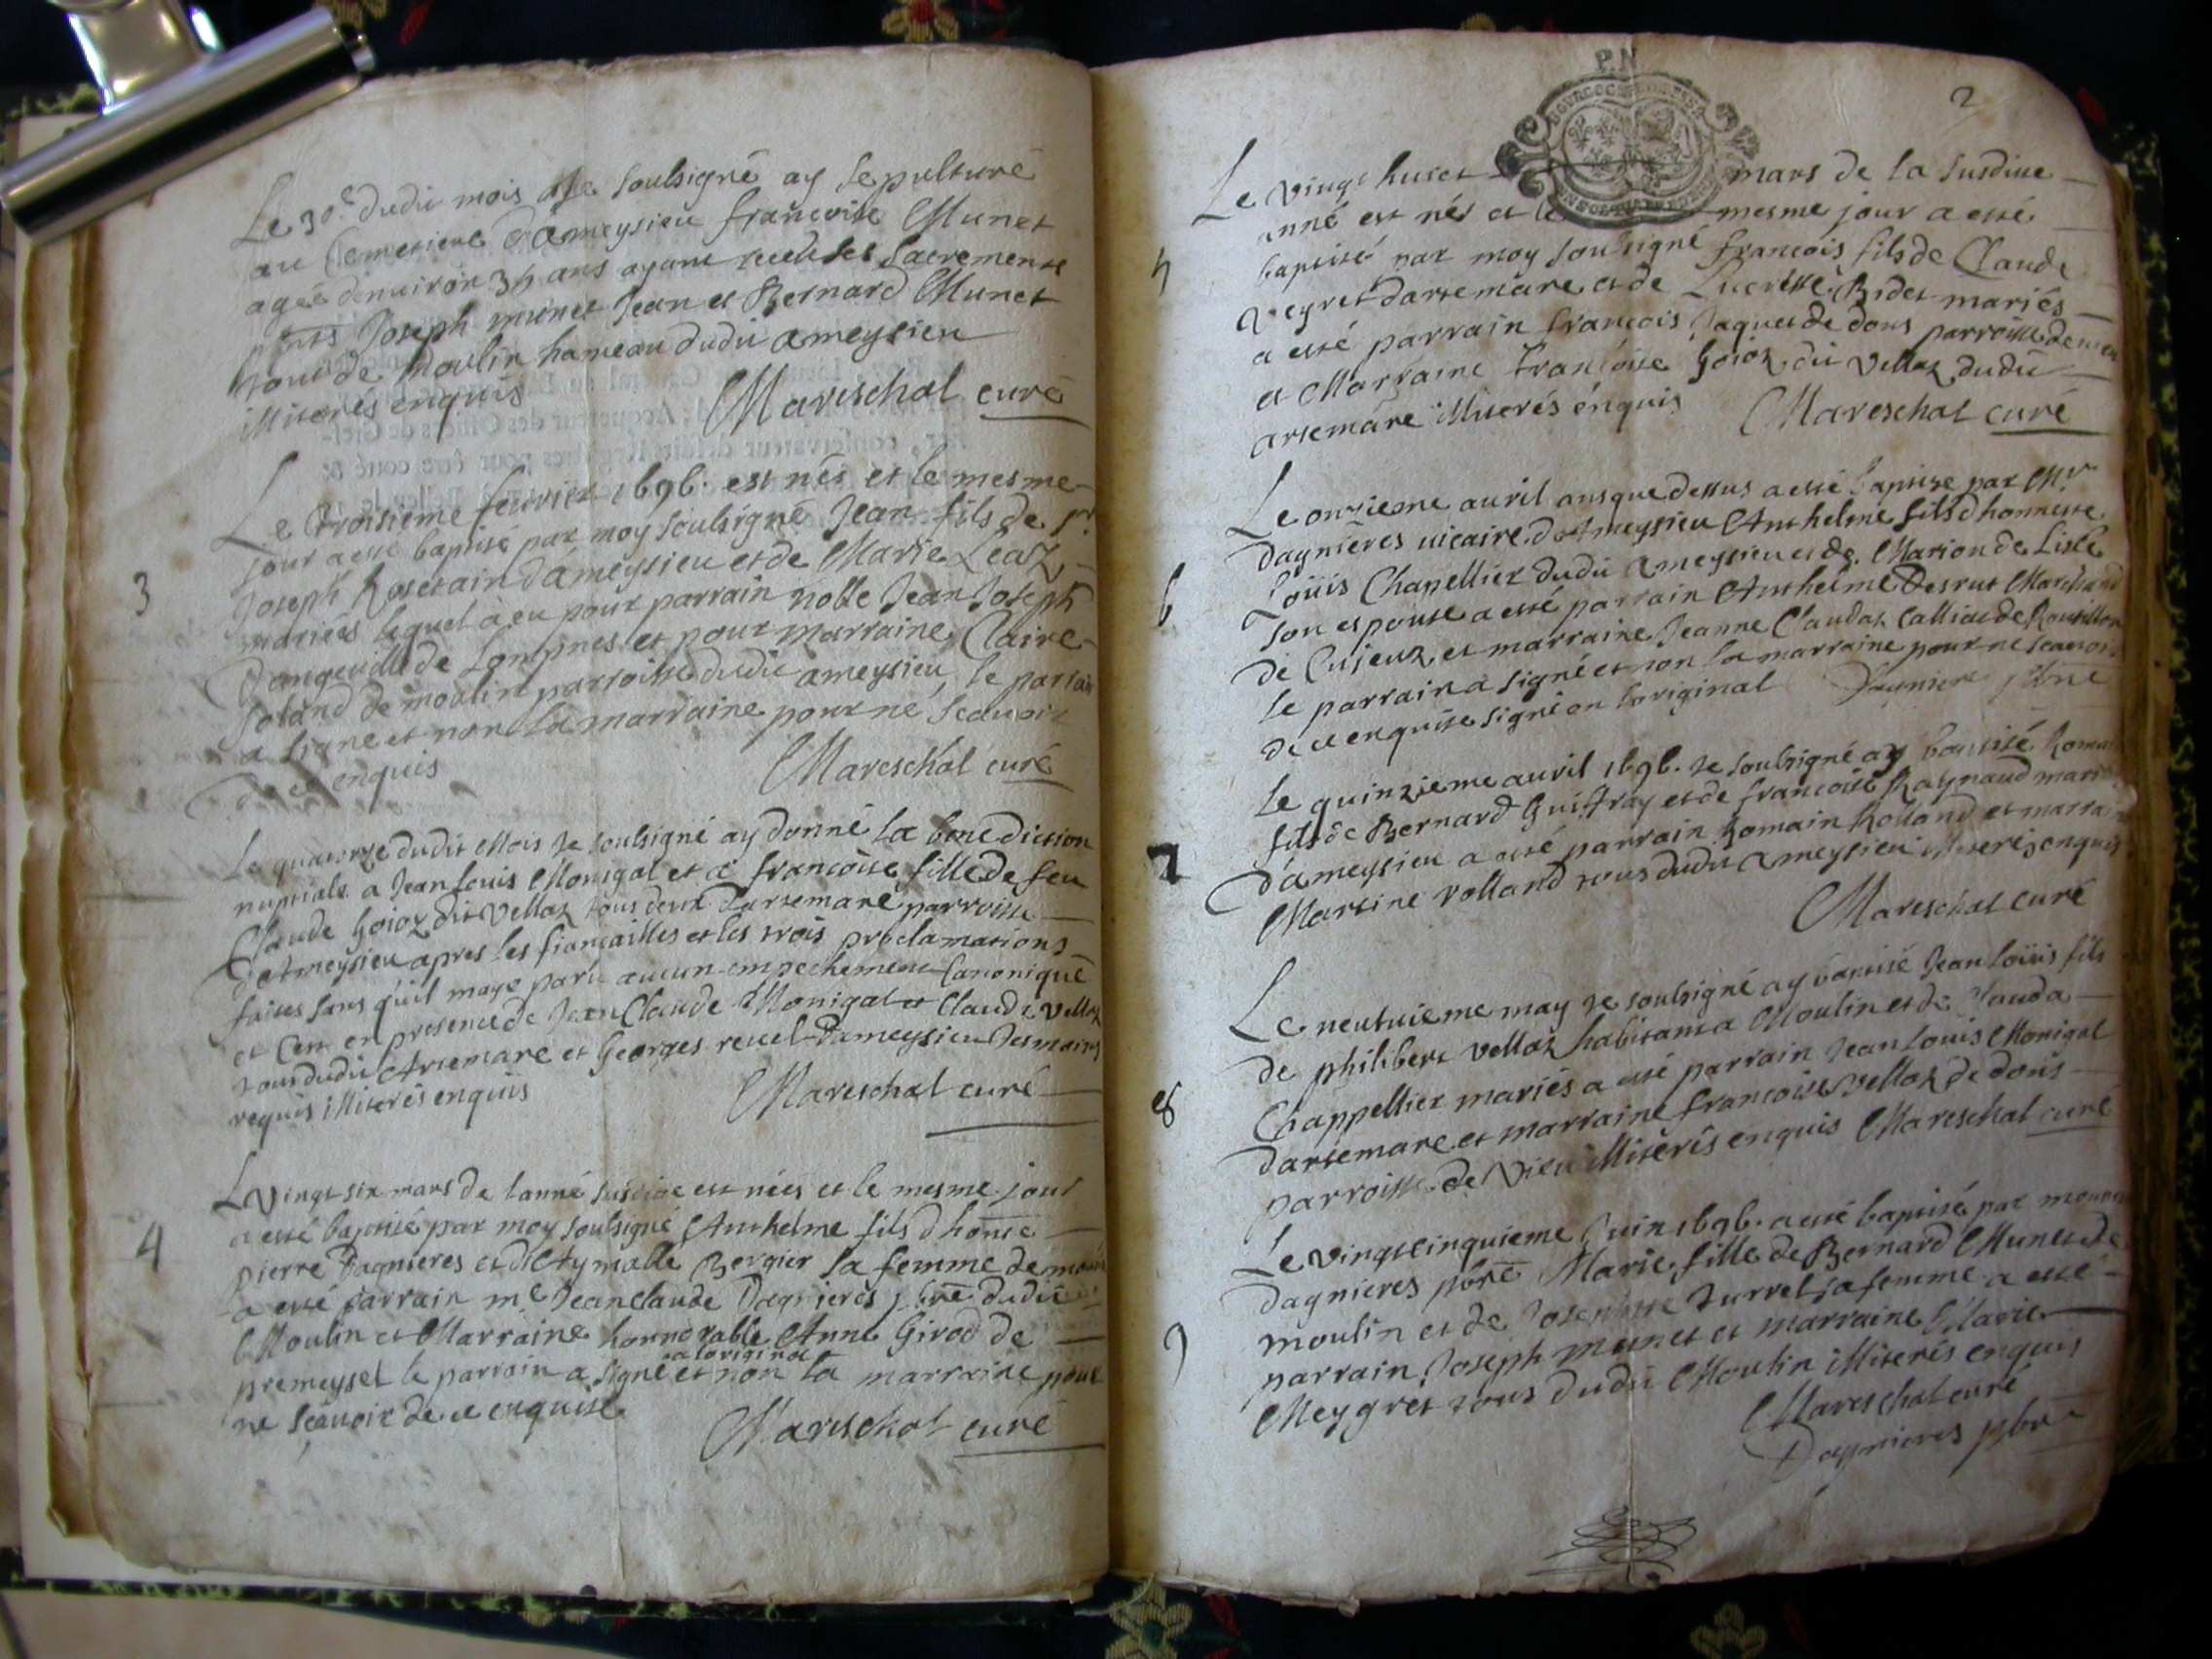 Le 30e dudit mois Je soubsigné ay sepulturé
au Cemetiere d'ameysieu françoise Munet
agée denuiron 34 ans ayant receu ses sacrements
pnts Joseph munet Jean et Bernard Munet
tous de moulin hameau dudit ameysieu
illiterés enquis Mareschal curé
3
Le troisieme feurier 1696. est nés et le mesme
jour a esté baptisé par moy soubsigné Jean fils de
Joseph d'ameysieu et de Marie
mariés lequel a eu pour parrain noble Jean Joseph
de et pour marraine Claire
de moulin parroisse dudit ameysieu, le parrain
a signé et non la marraine pour ne scauoir
de ce enquis Mareschal curé
Le quatorze dudit Mois Je soubsigné ay donné la benediction
nuptiale a Jean Louis Monigal et a françoise fille de feu
Claude Goioz dit Velloz tous deux d'artemare parroisse
d'Ameysieu apres les fiançailles et les trois proclamations
faites sans quil maye paru aucun empechement Canonique
et Ce en presence de Jean Claude Monigal et Claude Velloz
tous dudit Artemare et Georges reuel d'ameysieu tesmoins
requis illiterés enquis Mareschal curé
4
Le Vingt six mars de lanné susdite est nées et le mesme jour
a esté baptisé par moy soubsigné Anthelme fils d'honne
pierre Dagnieres et d'Aymable Bergier sa femme de
a esté parrain me Jean claude Dagnieres pbre dudit
Moulin et Marraine honnorable Anne Girod de
premeysel le parrain a signé a loriginal et non la marraine pour
ne scauoir de ce enquise
Mareschal curé
P.N
2
5
Le vingt huict mars de la susdite
anné est nés et le mesme jour a esté
baptisé par moy soubsigné françois fils de Claude
Veyret dartemare et de Lucresse Bidet mariés
a esté parrain francois Jaquet de dons parroisse de
et Marraine françoise Goioz dit Velloz dudit
artemare illiterés enquis Mareschal curé
6
Le onzieme auril ans que dessus a esté baptise par Mr
Dagnieres uicaire d'Ameysieu Anthelme fils d'honneste
Loüis Chapellier dudit ameysieu et de Marion de Lisle
son espouse a esté parrain Anthelme Desrut Marchand
de Cujeux et marraine Jeanne Claudaz Calliat de Rousillon
le parrain a signé et non la marraine pour ne scauoir
de ce enquise signé en loriginal Dagnieres pbre
7
Le quinzieme auril 1696. Je soubsigné ay baptisé Romain
fils de Bernard Guiffray et de françoise Raynaud mariés
d'ameysieu a esté parrain Romain Rolland et marraine
Martine rolland tous dudit Ameysieu illiterés enquis
Mareschal curé
8
Le neufuieme may Je soubsigné ay baptisé Jean loüis fils
de philibert Velloz habitant a Moulin et de Clauda
Chappellier mariés a esté parrain Jean Louis Monigal
dartemare et marraine françoise Velloz de dons
parroisse de Vieu illiterés enquis Mareschal curé
9
Le vingt cinquieme Juin 1696. a esté baptisé par
Dagnieres pbre Marie fille de Bernard Munet de
moulin et de Josephte Turrel sa femme a esté
parrain Joseph munet et marraine Marie
Meygret tous dudit Moulin illiterés enquis
Mareschal curé
Dagnieres pbre